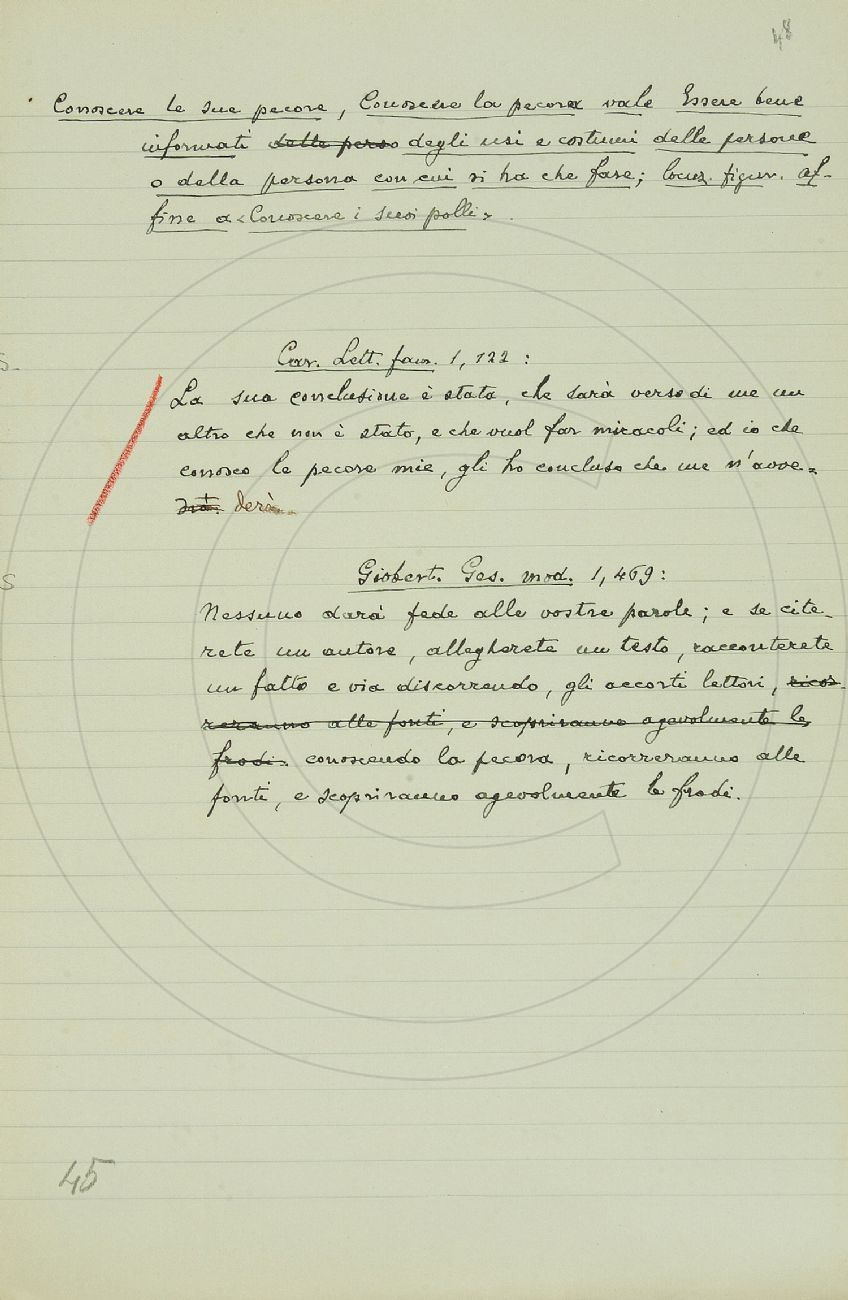 48
Conoscere le sue pecore, Conoscere la pecora vale Essere bene
informati delle perso degli usi e costumi delle persone
o della persona con cui si ha che fare; locuz. figur. af-
fine a «Conoscere i suoi polli».
S.
Car. Lett. fam. 1, 122:
La sua conclusione è stata, che sarà verso di me un
altro che non è stato, e che vuol far miracoli; ed io che
conosco le pecore mie, gli ho concluso che me n'avve-
drà. derà.
S
Giobert. Ges. mod. 1, 469:
Nessuno darà fede alle vostre parole; e se cite-
rete un autore, allegherete un testo, racconterete
un fatto e via discorrendo, gli accorti lettori, ricor-
reranno alle fonti, e scopriranno agevolmente le
frodi. conoscendo la pecora, ricorreranno alle
fonti, e scopriranno agevolmente le frodi.
45